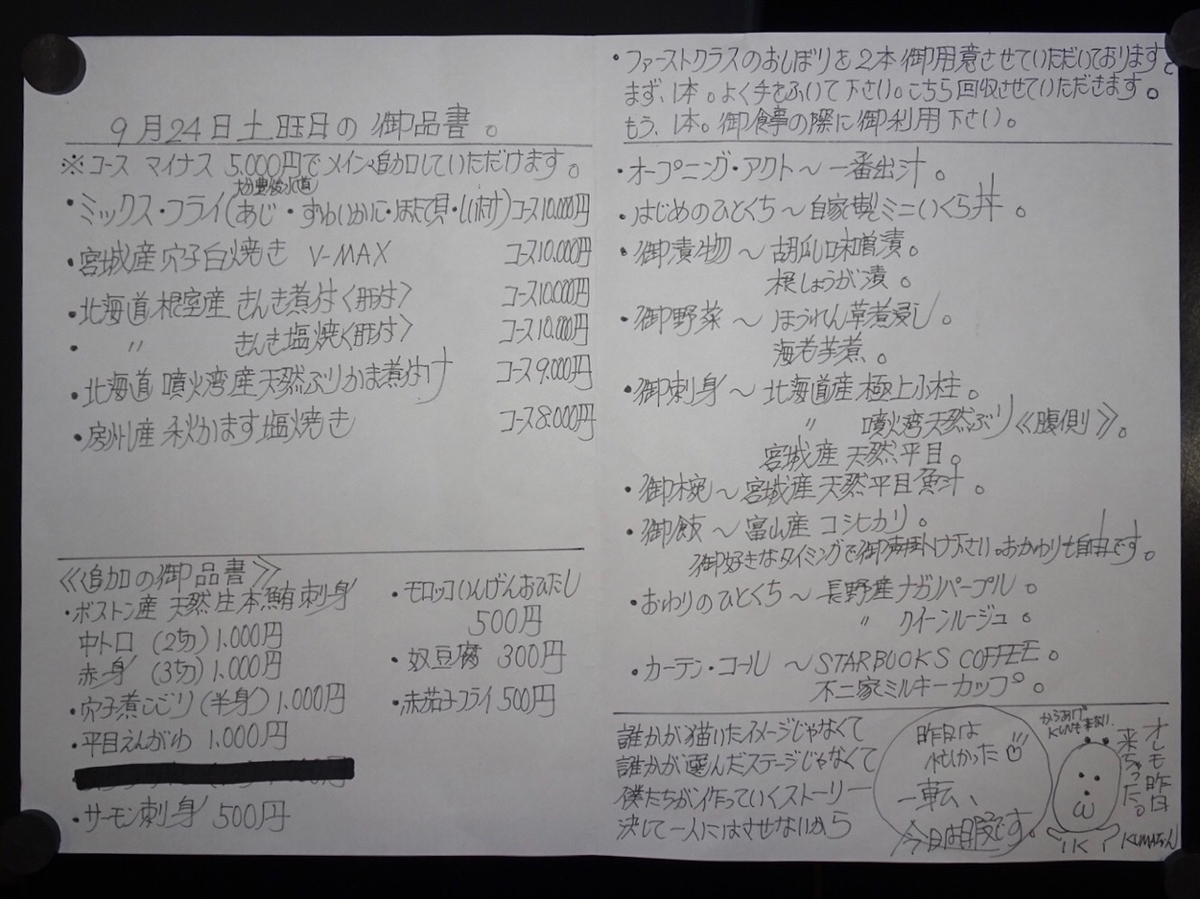 9月24日土曜日の御品書。
※コース マイナス 5.000円でメイン追加していただけます。
大分豊後水道
・ミックス・フライ(あじ・ずわいかに・ほたて貝・しいたけ) コース10.000円
・宮城産穴子白焼き V-MAX コース10.000円
・北海道根室産 きんき煮付〈肝付〉 コース10.000円
・〃 きんき塩焼〈肝付〉 コース10.000円
・北海道 噴火湾産天然ぶりかま煮付け コース9.000円
・房州産秋かます塩焼き コース8.000円
《追加の御品書》
・ボストン産 天然生本鮪刺身
中トロ (2切) 1.000円
赤身 (3切) 1.000円
・穴子煮こごり(半身) 1.000円
・平目えんがわ 1.000円
・サーモン刺身 500円
・モロッコいんげんおひたし
500円
・奴豆腐 300円
・赤茄子フライ 500円
・ファーストクラスのおしぼりを2本御用意させていただいております。
まず、1本。よく手をふいて下さい。こちら回収させていただきます。
もう、1本。御食事の際に御利用下さい。
・オープニング・アクト〜一番出汁。
・はじめのひとくち〜自家製ミニいくら丼。
・御漬物〜胡瓜味噌漬。
根しょうが漬。
・御野菜〜ほうれん草煮浸し。
海老芋煮。
・御刺身〜北海道産極上小柱。
〃 噴火湾天然ぶり《腹側》。
宮城産天然平目。
・御椀〜宮城産天然平目魚汁。
・御飯〜富山産コシヒカリ。
御好きなタイミングで御声掛け下さい。おかわりも自由です。
・おわりのひとくち〜長野産ナガノパープル。
〃 クイーンルージュ。
・カーテン・コール〜STARBUCKS COFFEE。
不二家ミルキーカップ。
誰かが描いたイメージじゃなくて
誰かが選んだステージじゃなくて
僕たちが作っていくストーリー
決して一人にはさせないから
昨日は
忙しかった
一転、
今日は暇です。
からあげ
KUNも来ない
オレも昨日
来ちゃった。
KUMAちゃん